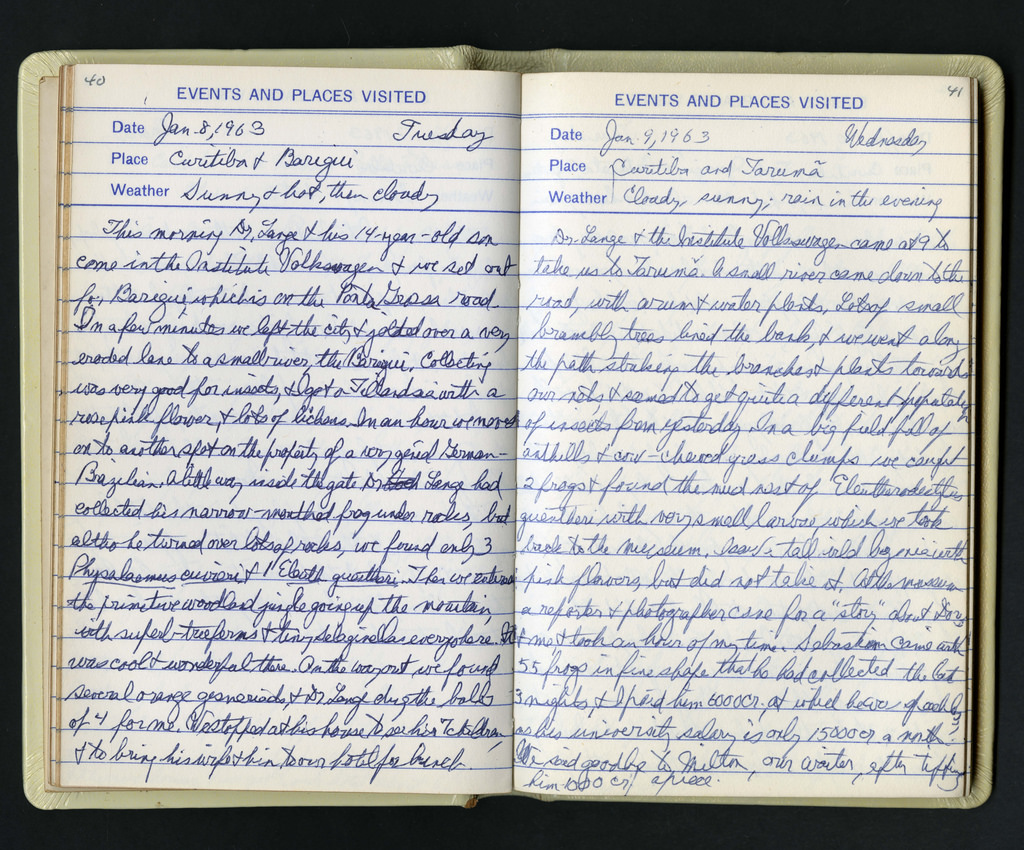 40
EVENTS AND PLACES VISITED
Date Jan. 8, 1963 Tuesday
Place Curitiba & Barigui
Weather Sunny & hot, then cloudy
This morning Dr. Lange & his 14-year-old son
came in the Institute Volkswagen & we set out
for Barigui, which is on the Ponta Grossa road.
In a few minutes we left the city & jolted over a very
eroded lane to a small river, the Barigui. Collecting
was very good for insects, & I got a Tillandsia with a
rose pink flower, & lots of lichens. In an hour we moved
on to another spot on the property of a very good German-
Brazilian. A little way inside the gate Dr. Lange had
collected his narrow-mouthed frog under rocks, but
altho he turned over lots of rocks, we found only 3
Physalaemus cuvieri & 1 Eleuth guentheri. Then we entered
the primitive woodland jungle going up the mountain,
with superb tree ferns & tiny selaginellas everywhere. It
was cool & wonderful there. On the way out we found
several orange gesneriads & Dr. Lange dug the bulbs
of 4 for me. We stopped at his house to see his 7 children,
& to bring his wife & him to our hotel for lunch.
41
EVENTS AND PLACES VISITED
Date Jan. 9, 1963 Wednesday
Place Curitiba and Tarumã
Weather Cloudy, sunny; rain in the evening
Dr. Lange & the Institute Volkswagen came at 9 to
take us to Tarumã. A small river came down to the
road, with arum & water plants. Lots of small
brambly trees lined the bank, & we went along
the path, striking the branches & plants towards
our nets, & seemed to get quite a different population
of insects from yesterday. In a big field full of
anthills & cow-chewed grass clumps we caught
2 frogs & found the mud nest of Eleutherodactylus
guentheri with very small larvae which we took
back to the museum. I saw tall wild begonia with
pink flowers, but did not take it. At the museum
a reporter & photographer came for a "story" about Doris
& me & took an hour of my time. Sebastian came with
55 frogs in fine shape that he had collected the last
3 nights, & I paid him 6000 cr. at which
as his university salary is only 15000 cr a month.
We said goodbye to Milton, our waiter, after tipping
him 1000 cr. apiece.